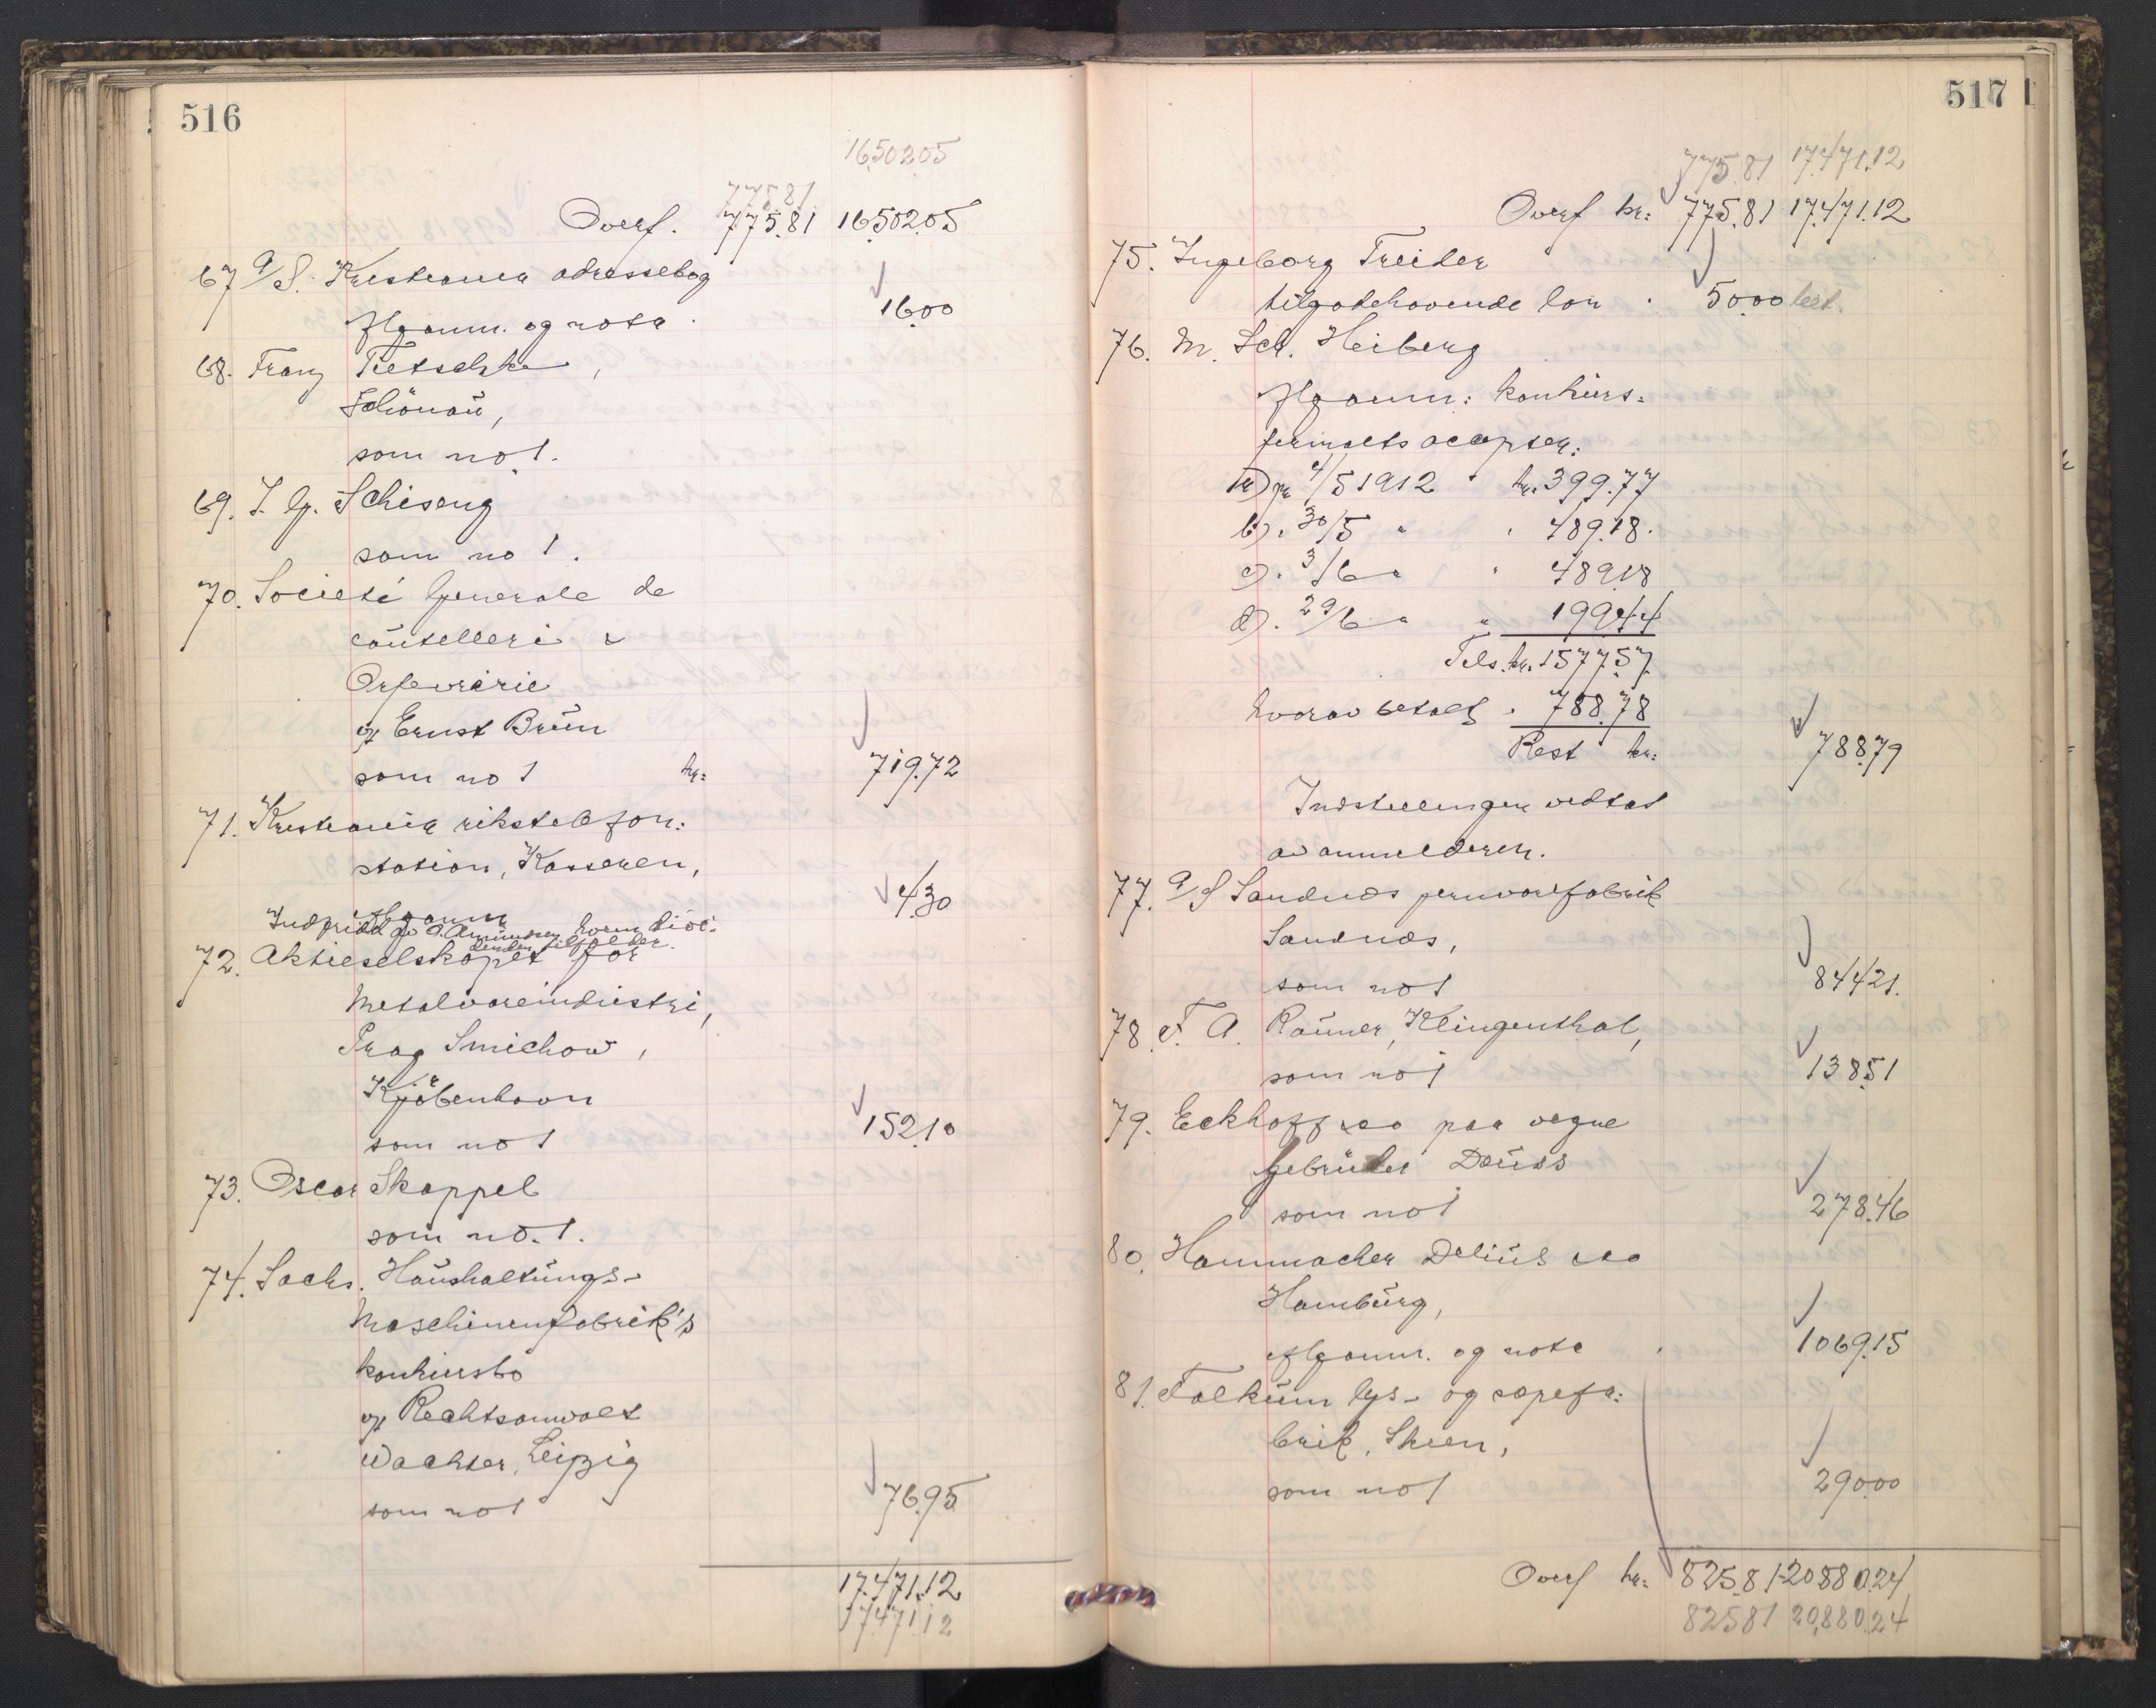 516
16502.05
775.81
Overf. 775.81 16502.05
67 A/S. Kristiania adressebog
ifl. anm. og nota. 16.00
68. Franz Tietschke,
Schönau,
som no 1.
69. I. G. Schiseng
som no 1.
70. Societé Generale de
coutelleri &
Orfevrerie
v/ Ernst Brun
som no 1 kr: 719.72
71. Kristiania rikstelefon:
station, Kasseren,
ifl. anm 4.30
Indfriet av A. Amundsen hvem divi-
denden tilfalder.
72. Aktieselskapet for
Metalvareindustri,
Prag Smichow,
Kjöbenhavn
som no 1 152.10
73. Oscar Skappel
som no. 1.
74. Sachs. Haushaltungs-
Maschinenfabrik's
konkursbo
v/ Rechtsanwalt
Wachter, Leipzig
som no 1 76.95
17.471.12
17471.12
517
775.81 17.471.12
Overf kr: 775.81 17.471.12
75. Ingeborg Treider
tilgodehavende løn . 50.00 best.
76. M. Sch. Heiberg
ifl. anm: konkurs-
fermaets accepter:
a) pr 4/5 1912 " kr. 399.77
b). 30/5 " " 489.18.
c). 3/6 " " 489.18
d). 29/6 " " 199.44
Tils. kr. 1577.57
hvorav betalt . 788.78
Rest kr: 788.79
Indstillingen vedtat
av anmelderen.
77. A/S Sandnes jernvarefabrik
Sandnes,
som no 1 844.21.
78. F. A. Rauner, Klingenthal,
som no 1 138.51
79. Eckhoff & co paa vegne
Gebrüder Deuss
som no 1 278.46
80. Hammacher Delius & co
Hamburg,
ifl. anm. og nota . 1069.15
81. Folkum lys- og sæpefa:
brik, Skien,
som no 1 290.00
Overf kr: 825.81 20880.24
825.81 20,880.24